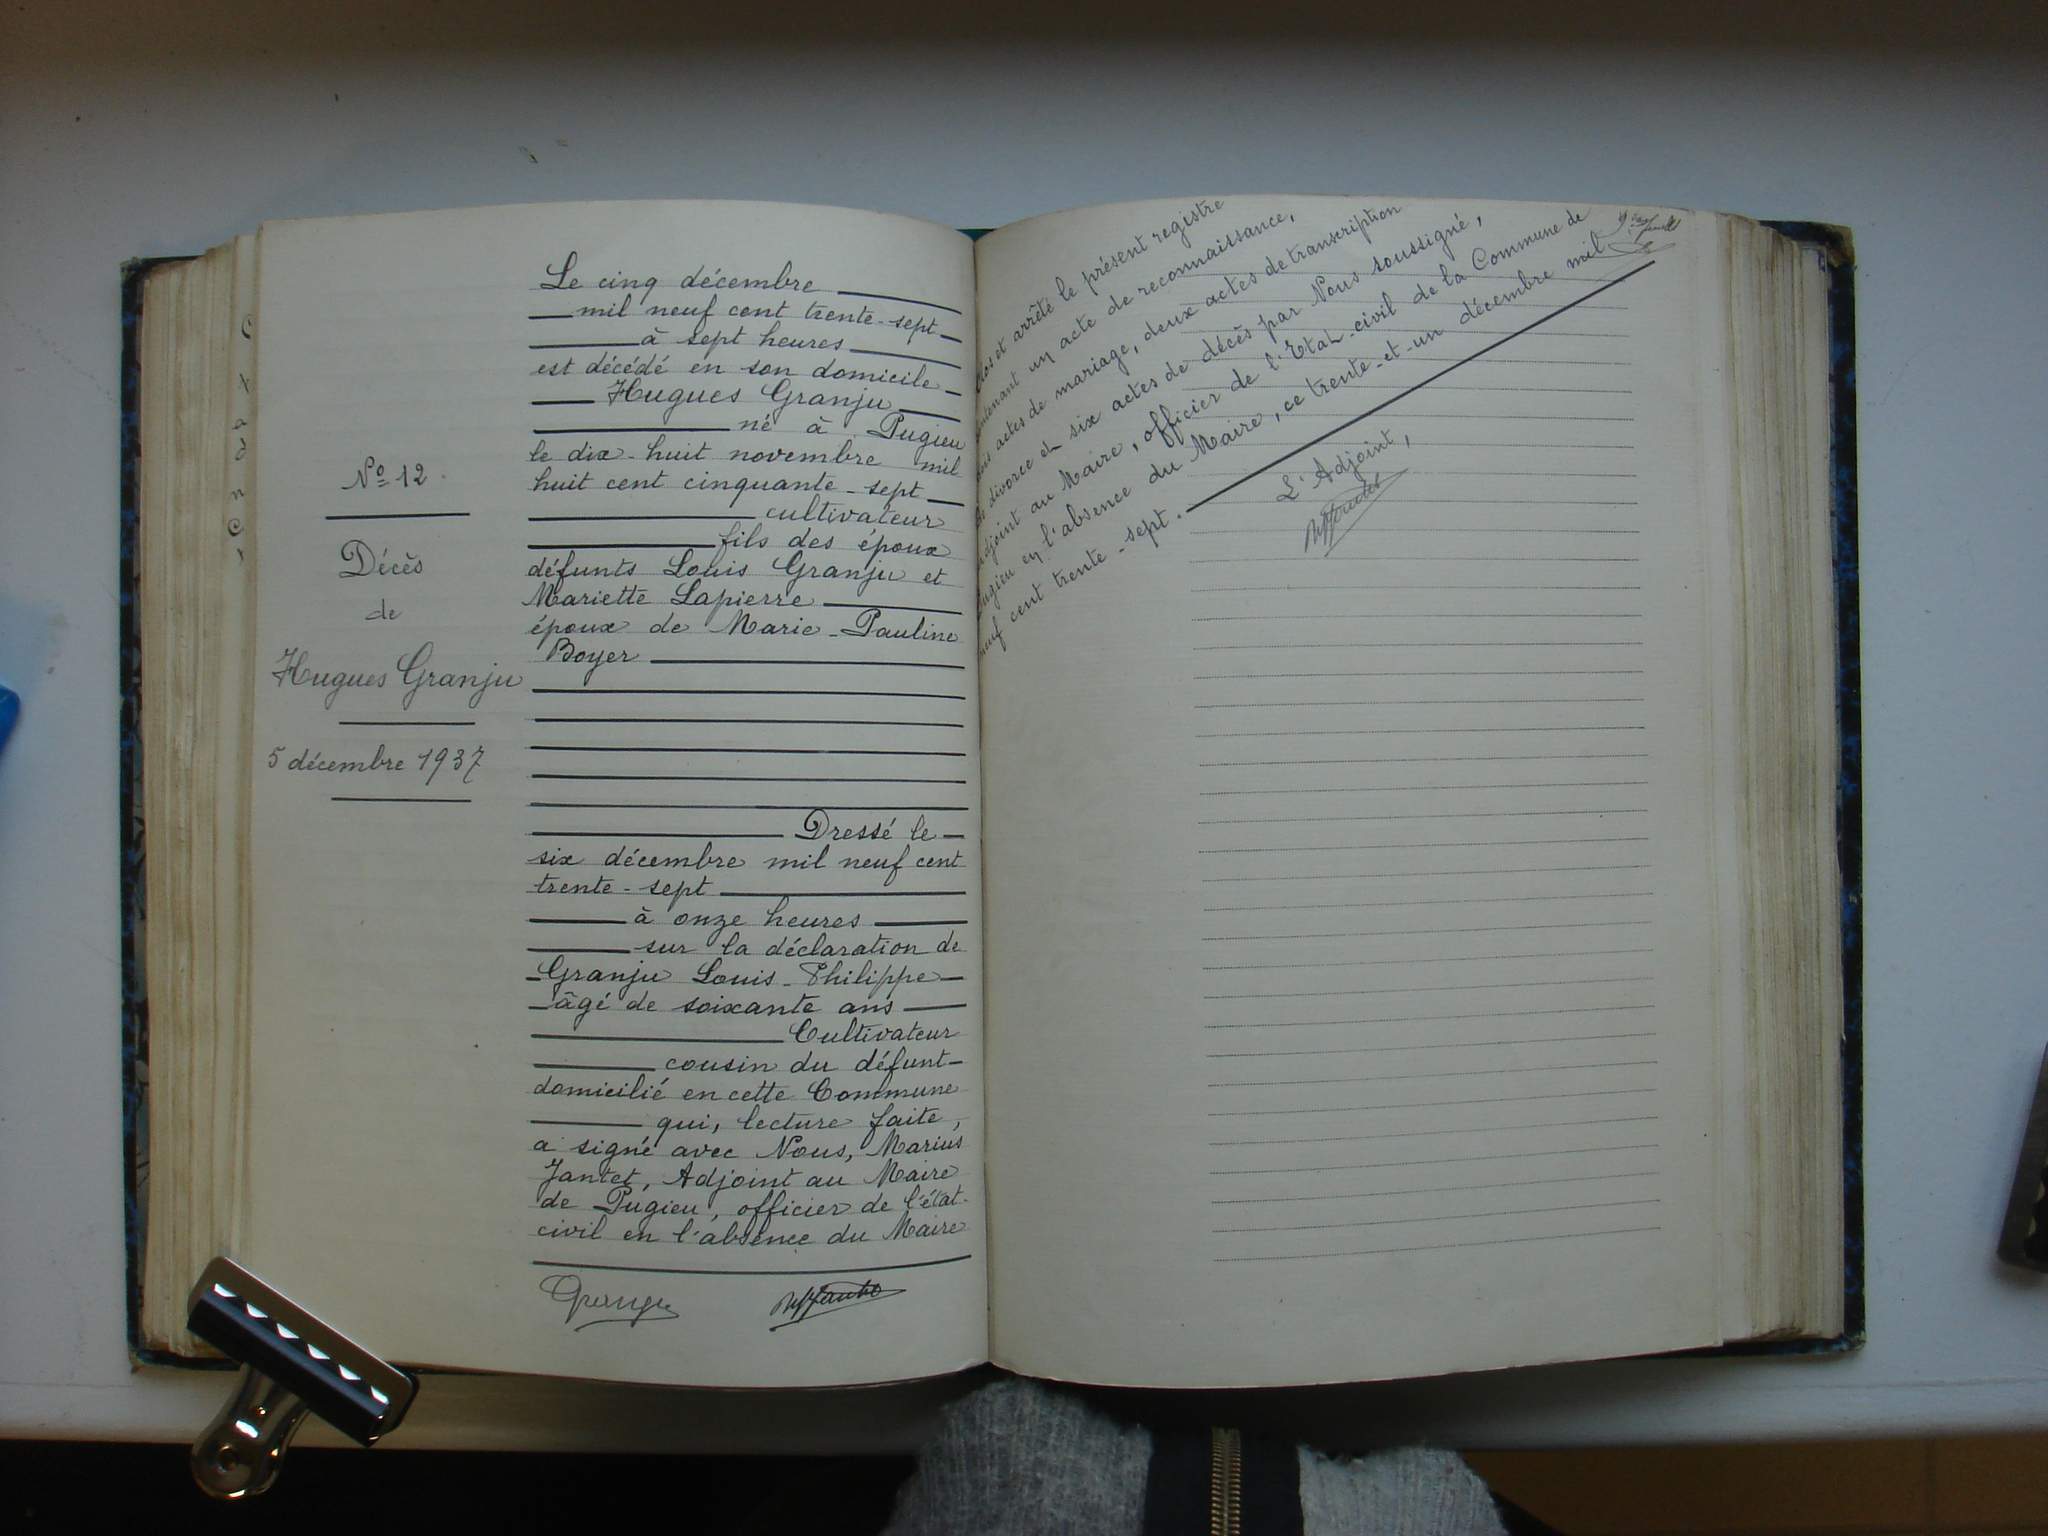 Nº 12
Décès
de
Hugues Granju
5 décembre 1937
Le cinq décembre
mil neuf cent trente-sept
à sept heures
est décédé en son domicile
Hugues Granju
né à Pugieu
le dix-huit novembre mil
huit cent cinquante-sept
cultivateur
fils des époux
défunts Louis Granju et
Mariette Lapierre
époux de Marie-Pauline
Boyer
Dressé le
six décembre mil neuf cent
trente-sept
à onze heures
sur la déclaration de
Granju Louis-Philippe
âgé de soixante ans
Cultivateur
cousin du défunt
domicilié en cette Commune
qui, lecture faite,
a signé avec Nous, Marius
Jantet, Adjoint au Maire
de Pugieu, officier de l'état-
civil en l'absence du Maire
Granju
et arrêté le présent registre
un acte de reconnaissance,
actes de mariage, deux actes de transcription
divorce et six actes de décès par Nous soussigné,
adjoint au Maire, officier de l'Etat-civil de la Commune de
Pugieu en l'absence du Maire, ce trente-et-un décembre mil
neuf cent trente-sept.
L'Adjoint,